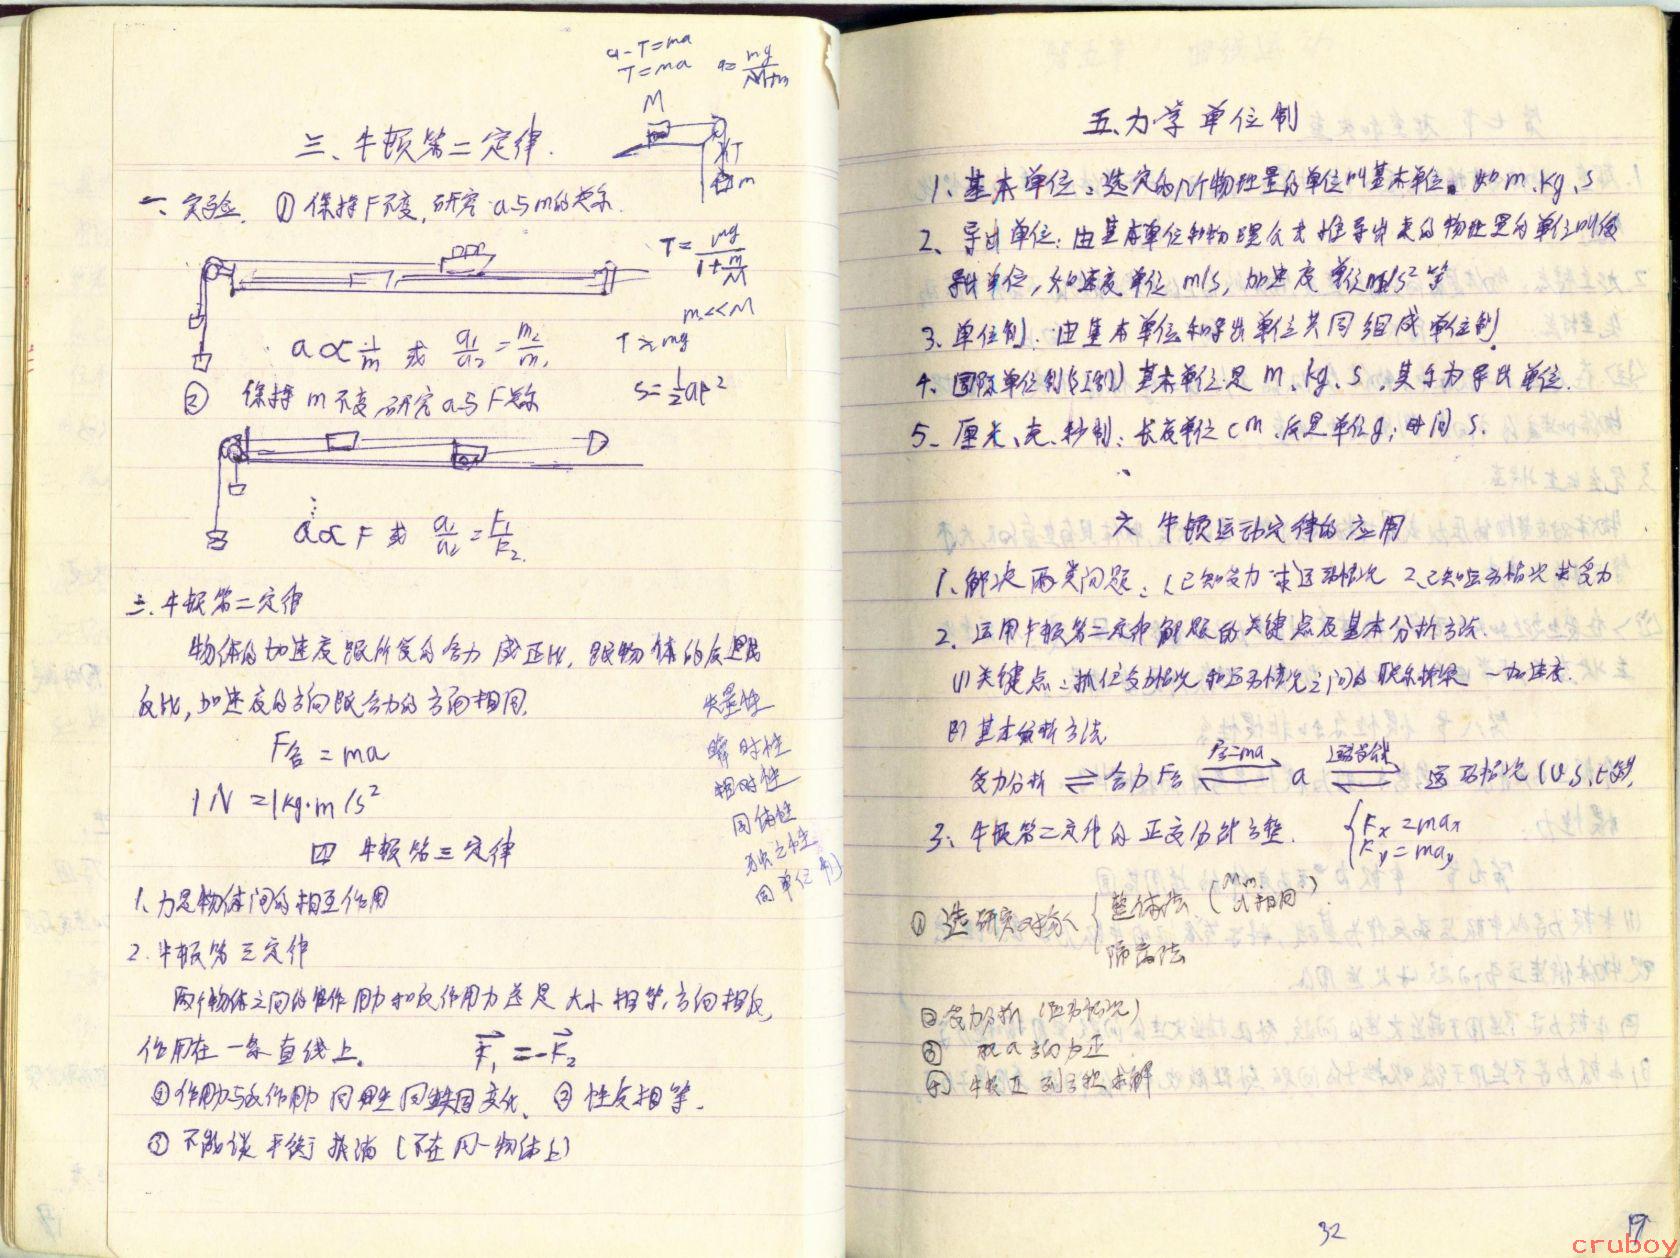 三、牛顿第二定律.
a-T=ma
T=ma a=mg/M+m
M
T
m
一、实验. ① 保持F不变,研究a与m的关系.
T=mg/1+m/M
m<<M
a∝1/m 或 a1/a2=m2/m1
T≈mg
② 保持m不变,研究a与F关系
S=1/2at²
a∝F 或 a1/a2=F1/F2.
二、牛顿第二定律
物体的加速度跟所受的合力成正比,跟物体的质量成
反比,加速度的方向跟合力的方向相同.
矢量性
瞬时性
相对性
同体性
同单位制
F合=ma
1N=1kg·m/s²
四 牛顿第三定律
1、力是物体间的相互作用
2.牛顿第三定律
两个物体之间的作用力和反作用力总是大小相等,方向相反,
作用在一条直线上。 F1=-F2
①作用力与反作用力同生同灭同变化、② 性质相等.
③ 不能谈平衡抵消(不在同一物体上)
五.力学单位制
1、基本单位:选定的几个物理量的单位叫基本单位。如m、kg、s
2、导出单位:由基本单位和物理公式推导出来的物理量的单位叫做
导出单位,如速度单位m/s,加速度单位m/s²等
3、单位制:由基本单位和导出单位共同组成单位制.
4、国际单位制(SI制)基本单位是m、kg、s,其为导出单位.
5、厘米、克、秒制:长度单位cm、质量单位g;时间s.
六 牛顿运动定律的应用
1、解决两类问题:1已知受力求运动情况 2、已知运动情况求受力
2.运用牛顿第二定律解题的关键点及基本分析方法.
(1)关键点:抓住受力情况和运动情况之间的联系桥梁—加速度.
(2)基本分析方法
受力分析⇌合力F合 F合=ma a 运动学公式 运动情况(v、s、t等).
3、牛顿第二定律的正交分解方程. {Fx=max
Fy=may
① 选研究对象{整体法(M、m a相同).
隔离法
②受力分析(运动情况)
③ 取a方向为正
④ 牛顿正列方程求解
32
19
cruboy